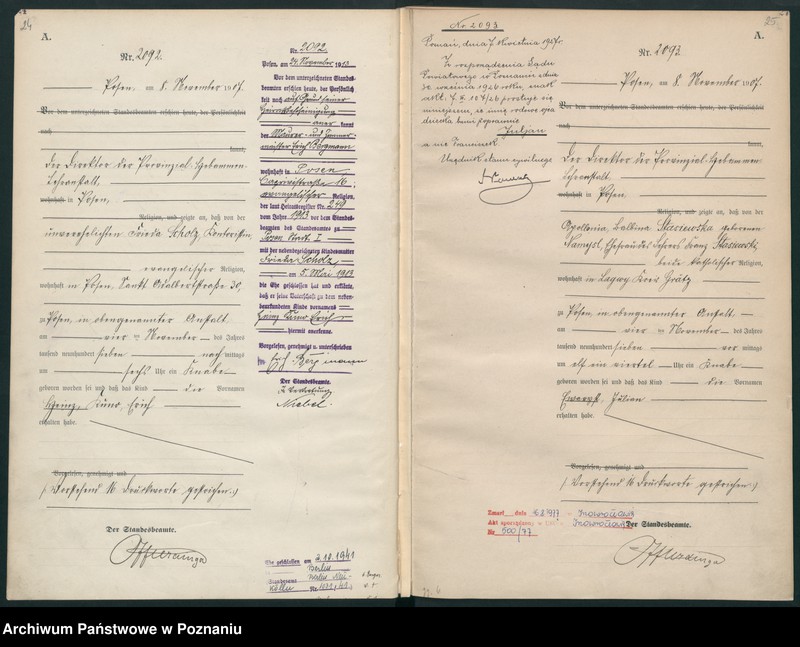 24
A.
Nr. 2092.
Posen, am 8. November 1907.
Vor dem unterzeichneten Standesbeamten erschien heute, der Persönlichkeit
nach
kannt,
Der Direktor der Provinzial-Hebammen-
Lehranstalt,
wohnhaft in Posen,
Religion, und zeigte an, daß von der
unverehelichten Frieda Scholz, Kontoristin,
evangelischer Religion,
wohnhaft in Posen, Sankt Adalbertstraße 30,
zu Posen, in obengenannter Anstalt
am vier ten November des Jahres
tausend neunhundert sieben nach mittags
um sechs Uhr ein Knabe
geboren worden sei und daß das Kind die Vornamen
Heinz, Kuno, Erich
erhalten habe.
Vorgelesen, genehmigt und
(Vorstehend 16 Druckworte gestrichen.)
Der Standesbeamte.
Nr. 2092
Posen, am 24. November 1913
Vor dem unterzeichneten Standes-
beamten erschien heute, der Persönlich-
keit nach auf Grund seiner
Heiratsbescheinigung
aner kannt
der Maurer- und Zimmer-
meister Erich Bergmann
wohnhaft in Posen
Caprivistraße 16,
evangelischer Religion,
der laut Heiratsregister Nr. 249
vom Jahre 1913 vor dem Standes-
beamten des Standesamtes zu
Posen Stadt I
mit der nebenbezeichneten Kindesmutter
Frieda Scholz
am 5. Mai 1913
die Ehe geschlossen hat und erklärte,
daß er seine Vaterschaft zu dem neben-
beurkundeten Kinde vornamens
Heinz Kuno Erich
hiermit anerkenne.
Vorgelesen, genehmigt und unterschrieben
Erich Bergmann
Der Standesbeamte.
In Vertretung
Niebel.
Ehe geschlossen am 2.10.1941
Berlin
Standesamt Berlin Neu-
kölln Nr. 1071/41
25
A.
No 2093
Poznań, dnia 7 kwietnia 1927 r.
Z rozporządzenia Sądu
Powiatowego w Poznaniu z dnia
września 1926 roku, znak
akt.
Julian
a nie Franciszek.
Urzędnik stanu cywilnego
Nr. 2093
Posen, am 8. November 1907.
Vor dem unterzeichneten Standesbeamten erschien heute, der Persönlichkeit
nach
kannt,
Der Direktor der Provinzial-Hebammen-
Lehranstalt
wohnhaft in Posen,
Religion, und zeigte an, daß von der
Apollonia, Balbina Stasiewska geborenen
Namysl, Ehefrau des Lehrers Franz Stasiewski,
beide katholischer Religion,
wohnhaft in Lagwy Kreis Grätz
zu Posen, in obengenannter Anstalt
am vier ten November des Jahres
tausend neunhundert sieben vor mittags
um elf ein viertel Uhr ein Knabe
geboren worden sei und daß das Kind die Vornamen
Julian
erhalten habe.
Vorgelesen, genehmigt und
(Vorstehend 16 Druckworte gestrichen.)
Zmarł dnia 1977 w Inowrocław
Akt sporządzono w USC Inowrocław
Nr 500/77
Der Standesbeamte.
Archiwum Państwowe w Poznaniu